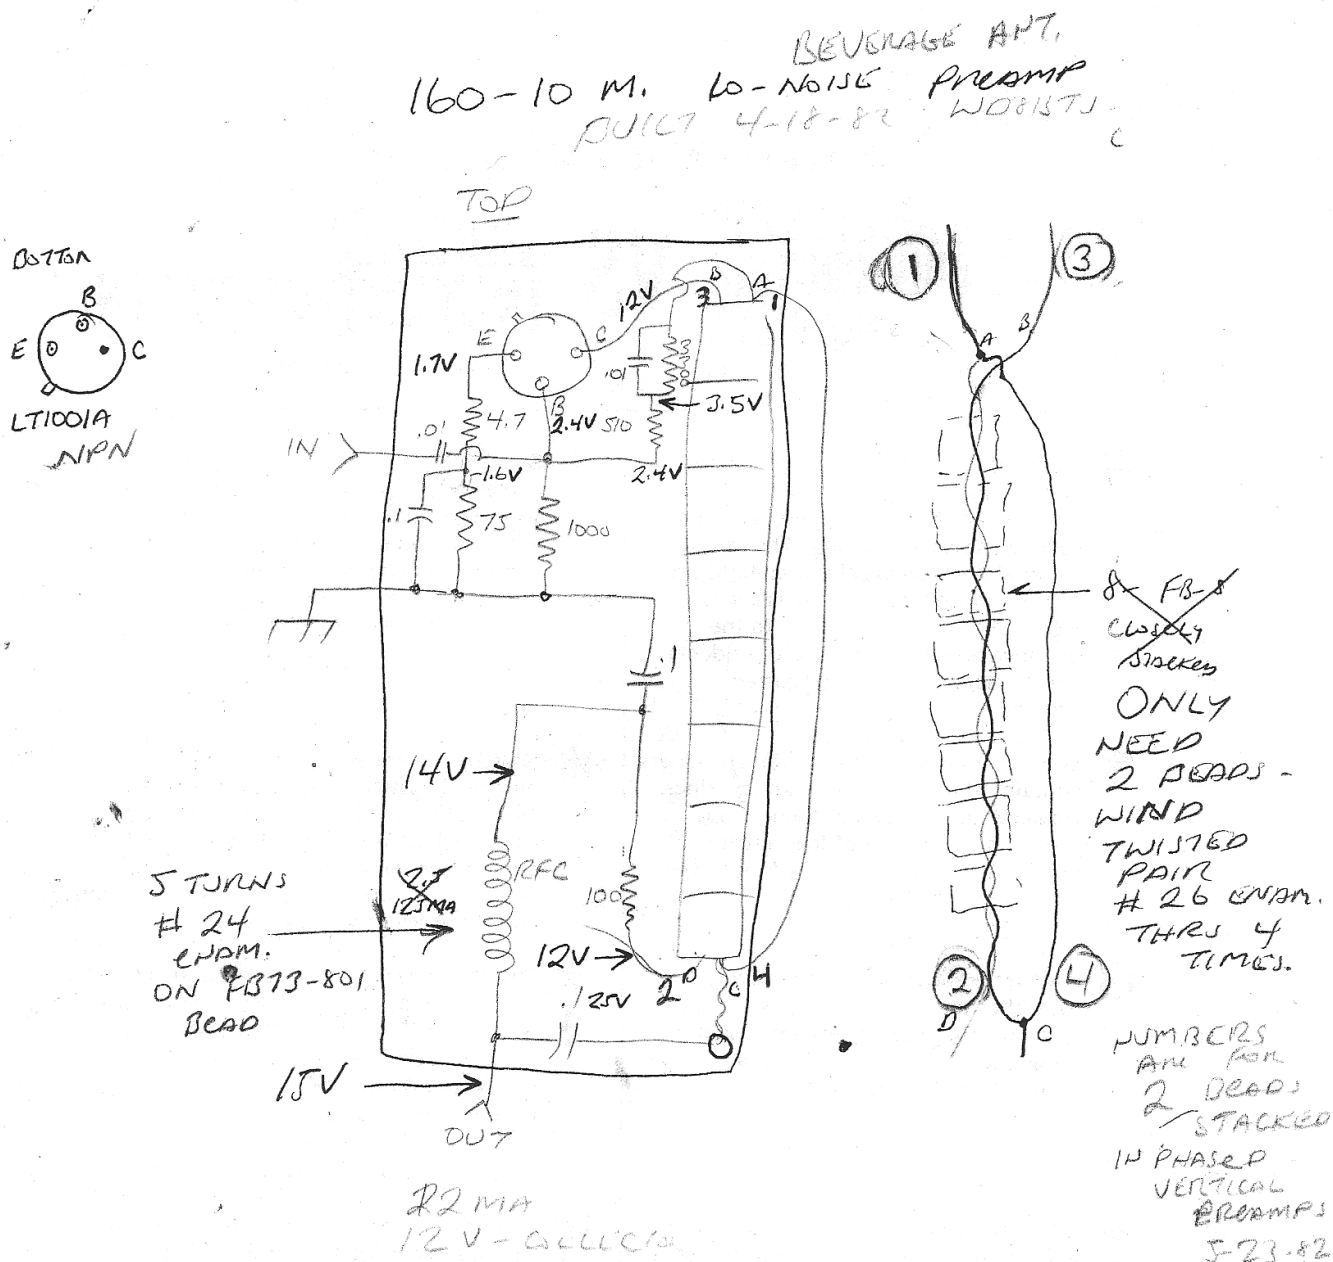 BEVERAGE ANT.
160-10 M. LO-NOISE PREAMP
BUILT 4-18-82 WD8ISTJ
TOP
BOTTOM
B
E
C
LT1001A
NPN
E
C
B
12V
B
A
3
1
1.7V
4.7
2.4V
510
.01
3.5V
IN
.01
1.6V
2.4V
.1
75
1000
.1
14V
RFC
2.5
125MA
100
12V
2
D
C
4
.1 25V
5 TURNS
# 24
ENAM.
ON FB73-801
BEAD
15V
OUT
22 MA
12 V-
1
3
A
B
8- FB-8
CLOSELY
STACKED
ONLY
NEED
2 BEADS -
WIND
TWISTED
PAIR
# 26 ENAM.
THRU 4
TIMES.
2
D
4
C
NUMBERS
ARE FOR
2 BEADS
STACKED
IN PHASED
VERTICAL
PREAMPS
5-23-82